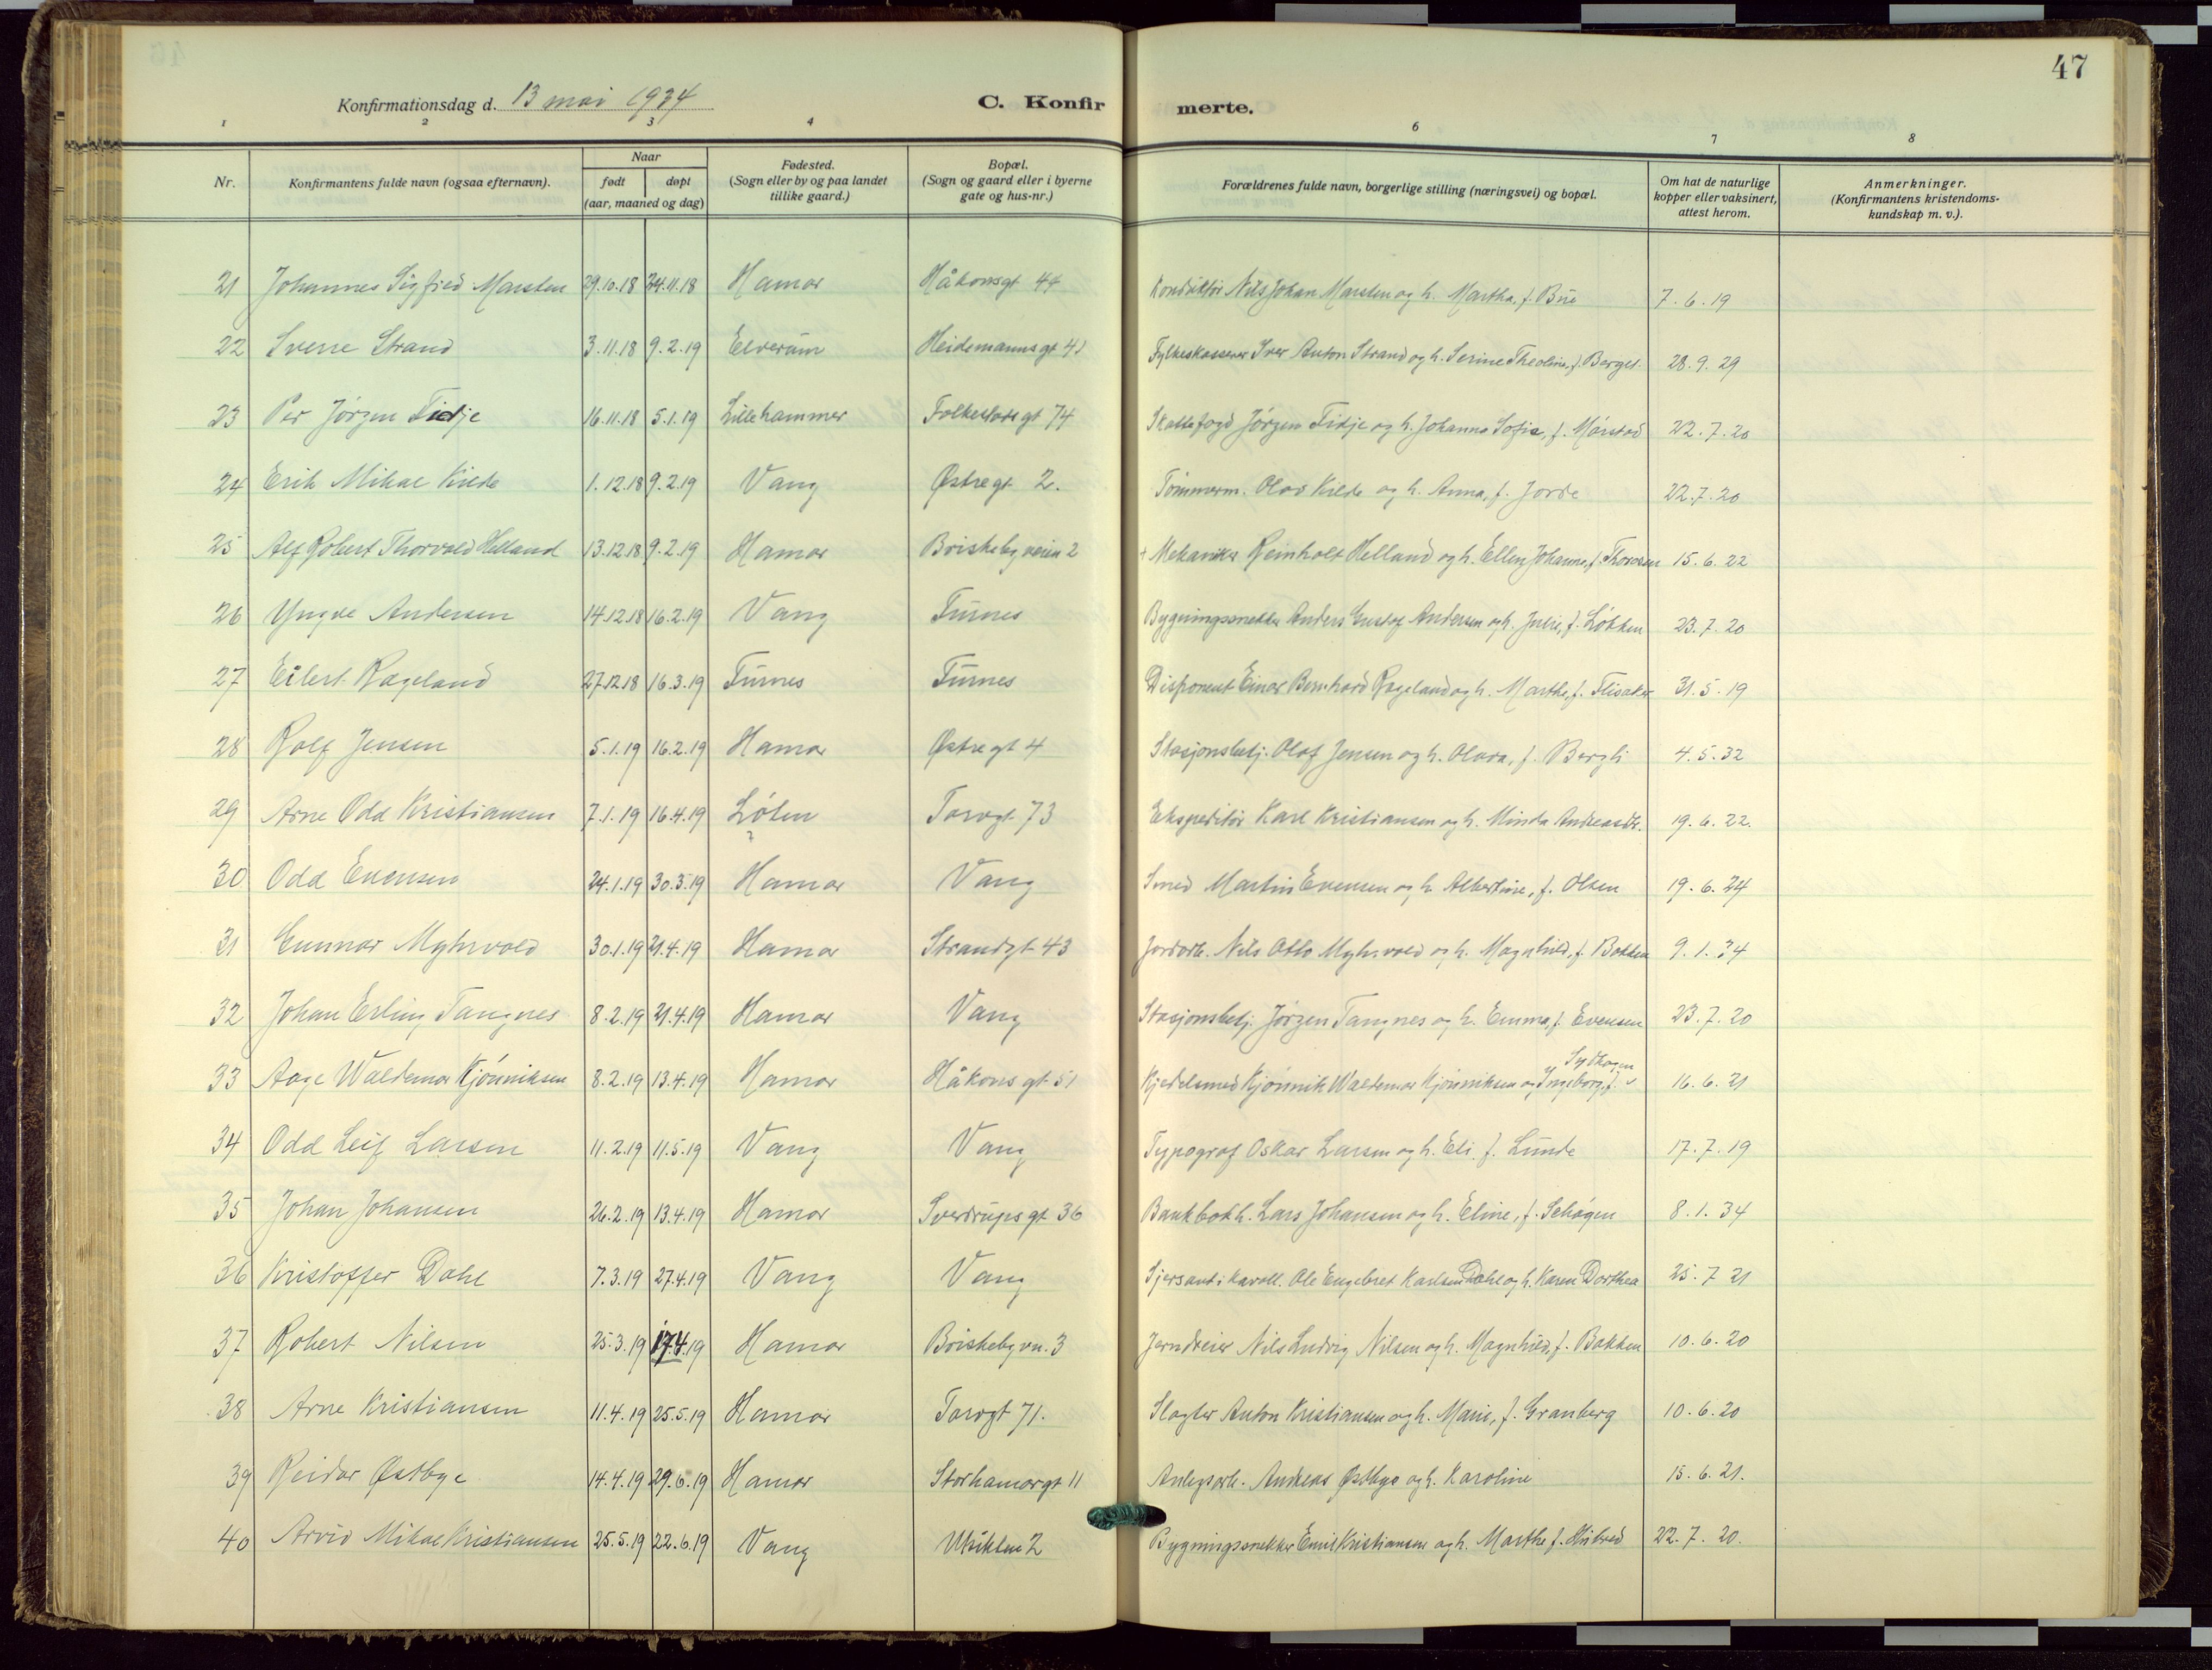 47
Konfirmationsdag d. 13 mai 1934
C. Konfirmerte.
1 2 3 4 6 7 8
Nr.
Konfirmantens fulde navn (ogsaa efternavn).
Naar
født døpt
(aar, maaned og dag)
Fødested.
(Sogn eller by og paa landet
tillike gaard.)
Bopæl.
(Sogn og gaard eller i byerne
gate og hus-nr.)
Forældrenes fulde navn, borgerlige stilling (næringsvei) og bopæl.
Om hat de naturlige
kopper eller vaksinert,
attest herom.
Anmerkninger.
(Konfirmantens kristendoms-
kundskap m. v.).
21 Johannes Sigfred Marsten 29.10.18 24.11.18 Hamar Håkonsgt 44 Konduktør Nils Johan Marsten og h. Martha, f. Bue 7.6.19
22 Sverre Strand 3.11.18 9.2.19 Elverum Heidemannsgt 41 Fylkeskasserer Iver Anton Strand og h. Serine Theoline, f. Berget 28.9.29
23 Per Jørgen Tidje 16.11.18 5.1.19 Lillehammer Folkestadsgt 74 Skattefogd Jørgen Tidje og h. Johanna Sofie, f. Mørstad 22.7.20
24 Erik Mikal Kilde 1.12.18 9.2.19 Vang Østregt 2. Tømmerm. Olav Kilde og h. Anna, f. Jorde 22.7.20
25 Alf Robert Thorvald Helland 13.12.18 9.2.19 Hamar Briskebyveien 2 + Mekaniker Reinholt Helland og h. Ellen Johanne, f. Thorosen 15.6.22
26 Yngve Andersen 14.12.18 16.2.19 Vang Furnes Bygningssnekker Anders Gustaf Andersen og h. Julie, f. Løkken 23.7.20
27 Eilert Rageland 27.12.18 16.3.19 Furnes Furnes Disponent Einar Bernhard Rageland og h. Marthe, f. Flisaker 31.5.19
28 Rolf Jensen 5.1.19 16.2.19 Hamar Østregt 4 Stasjonsbetj. Olaf Jensen og h. Olava, f. Bergli 4.5.32
29 Arne Odd Kristiansen 7.1.19 16.4.19 Løten Torvgt 73 Ekspeditør Karl Kristiansen og h. Minda Andreasdtr. 19.6.22.
30 Odd Evensen 24.1.19 30.3.19 Hamar Vang Smed Martin Evensen og h. Albertine, f. Olsen 19.6.24
31 Gunnar Myhrvold 30.1.19 21.4.19 Hamar Strandgt 43 Jordarb. Nils Otto Myhrvold og h. Magnhild, f. Bakken 9.1.34
32 Johan Erling Tangnes 8.2.19 21.4.19 Hamar Vang Stasjonsbetj. Jørgen Tangnes og h. Emma, f. Evensen 23.7.20
33 Aage Waldemar Kjønniksen 8.2.19 13.4.19 Hamar Håkonsgt 51 Kjedelsmed Kjønnik Waldemar Kjønniksen og Ingeborg, f. Sydhagen 16.6.21
34 Odd Leif Larsen 11.2.19 11.5.19 Vang Vang Typograf Oskar Larsen og h. Eli, f. Lunde 17.7.19
35 Johan Johansen 26.2.19 13.4.19 Hamar Sverdrupsgt 36 Bankbokh. Lars Johansen og h. Eline, f. Schøgen 8.1.34
36 Kristoffer Dahl 7.3.19 27.4.19 Vang Vang Sjersant i kavall. Ole Engebret Karlsen Dahl og h. Karen Dorthea 25.7.21
37 Robert Nilsen 25.3.19 17.4.19 Hamar Briskebyvn. 3 Jerndreier Nils Ludvig Nilsen og h. Magnhild, f. Bakken 10.6.20
38 Arne Kristiansen 11.4.19 25.5.19 Hamar Torvgt 71. Slagter Anton Kristiansen og h. Marie, f. Granberg 10.6.20
39 Reidar Østbye 14.4.19 29.6.19 Hamar Storhamargt 11 Anlegsarb. Andreas Østbye og h. Karoline 15.6.21.
40 Arvid Mikal Kristiansen 25.5.19 22.6.19 Vang Utsikten 2 Bygningssnekker Emil Kristiansen og h. Marthe f. 22.7.20.